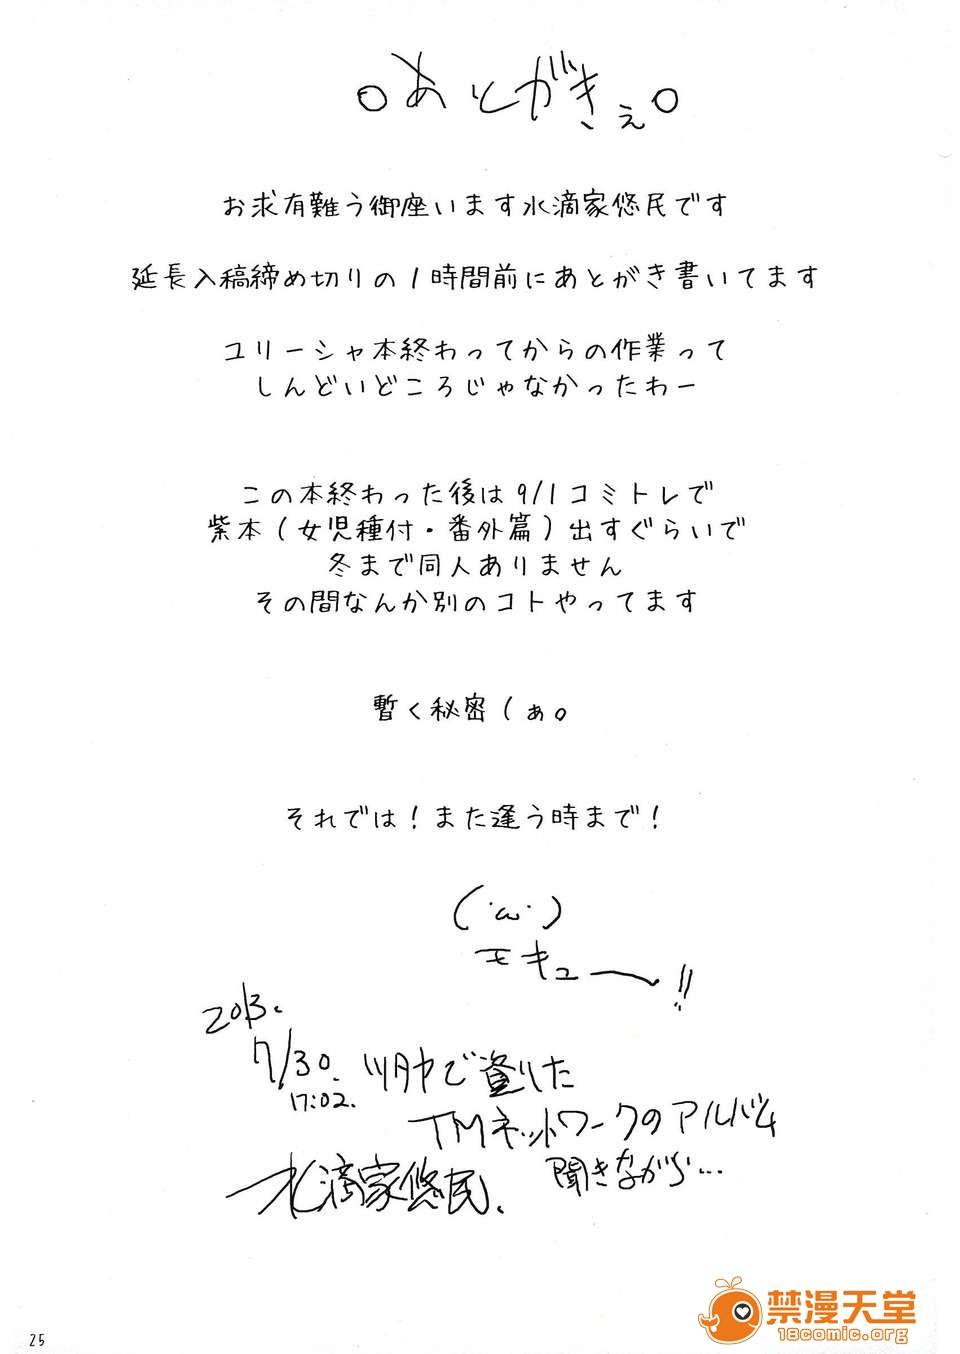 。あとがきぇ。
お求有難う御座います水滴家悠民です
延長入稿締め切りの1時間前にあとがき書いてます
ユリーシャ本終わってからの作業って
しんどいどころじゃなかったわー
この本終わった後は9/1コミトレで
紫本(女児種付・番外篇)出すぐらいで
冬まで同人ありません
その間なんか別のコトやってます
暫く秘密(ぁ。
それでは!また逢う時まで!
(・ω・)
モキューー!!
2013.
7/30.
17:02.
TMネットワークのアルバム
聞きながら…
水滴家悠民.
25
禁漫天堂
18comic.org